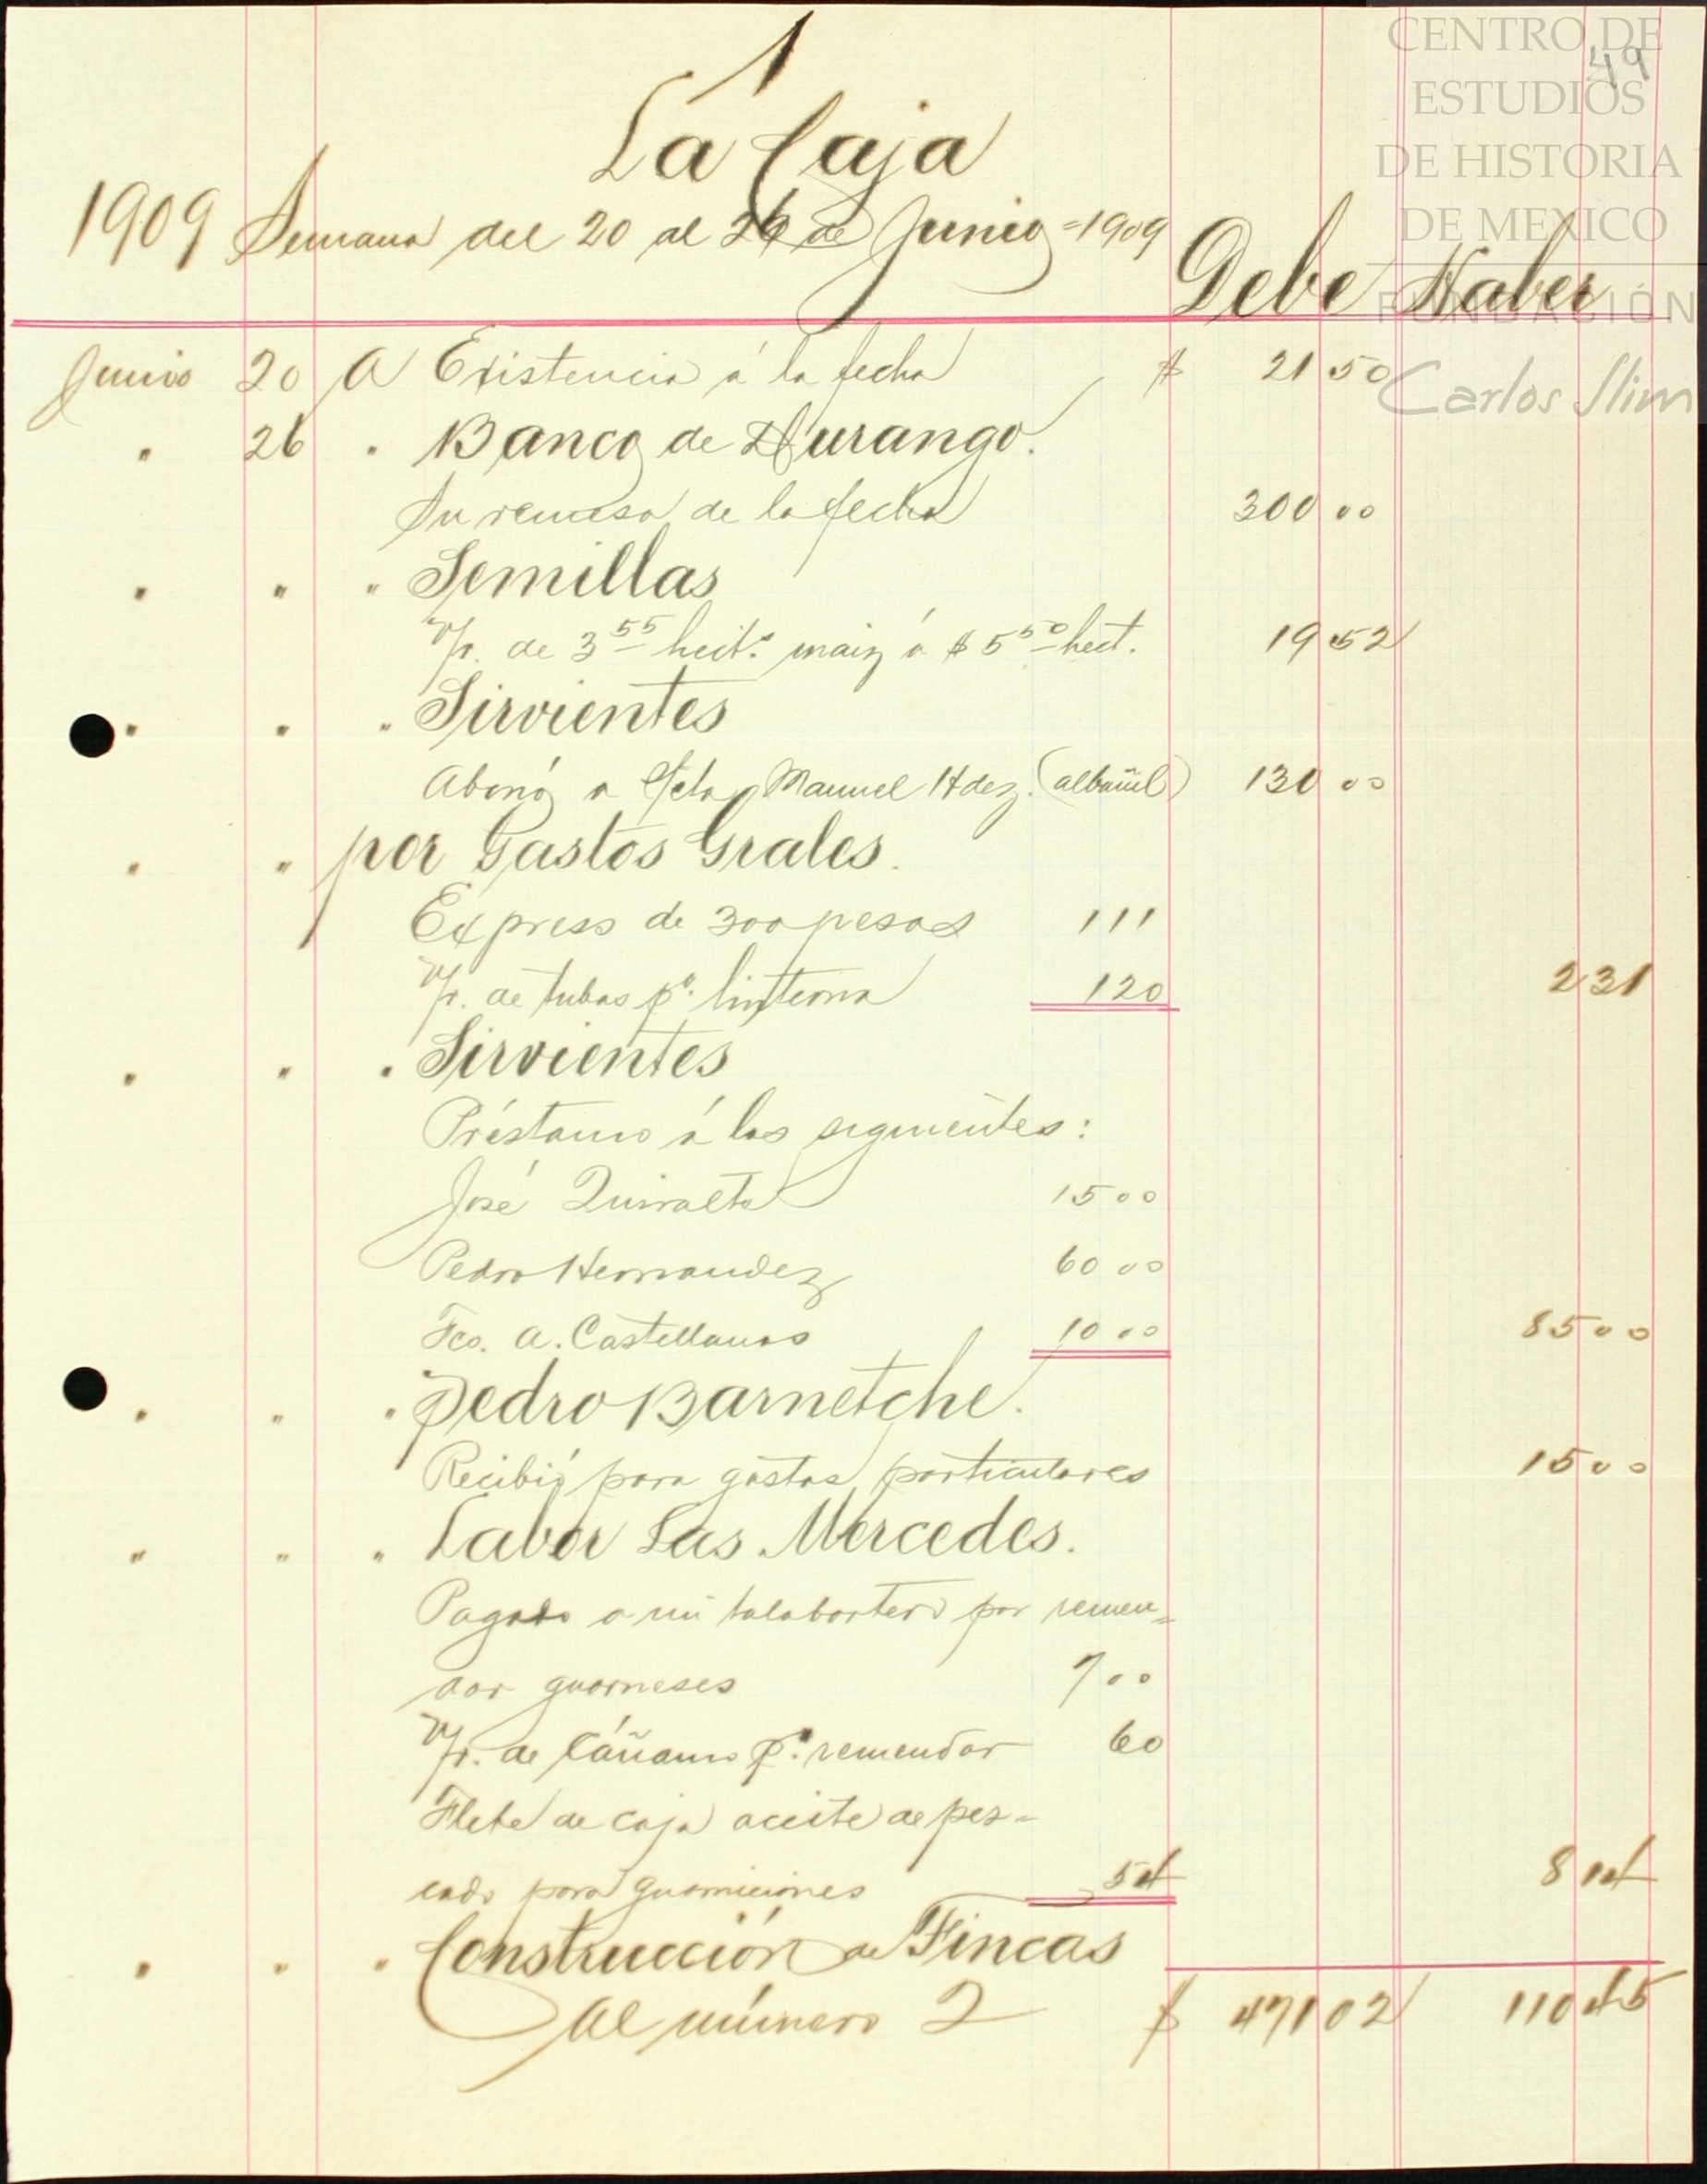 1
La Caja
1909 Semana del 20 al 26 de Junio = 1909
Debe Haber
Junio 20 A Existencia á la fecha $ 21 50
" 26 " Banco de Durango.
Su remesa de la fecha 300 00
" " " Semillas
V/r. de 3 55 hect.s maiz á $ 5 50 hect. 19 52
" " " Sirvientes
Abonó a c/cta Manuel Hdez. (albañil) 130 00
" " por Gastos Grales.
Express de 300 pesos 1 11
V/r. de tubos pa. linterna 1 20 2 31
" " " Sirvientes
Préstamo á los siguientes:
José Quiralta 15 00
Pedro Hernandez 60 00
Fco. A. Castellanos 10 00 85 00
" " " Pedro Barnetche.
Recibió para gastos particulares 15 00
" " " Labor Las Mercedes.
Pagado a un talabartero por remen=
dar guarneses 7 00
V/r. de Cáñamo pa. remendar 60
Flete de caja aceite de pes=
cado para guarniciones 54 8 14
" " " Construcción de Fincas
Al número 2 $ 471 02 110 45
49
CENTRO DE
ESTUDIOS
DE HISTORIA
DE MEXICO
FUNDACIÓN
Carlos Slim